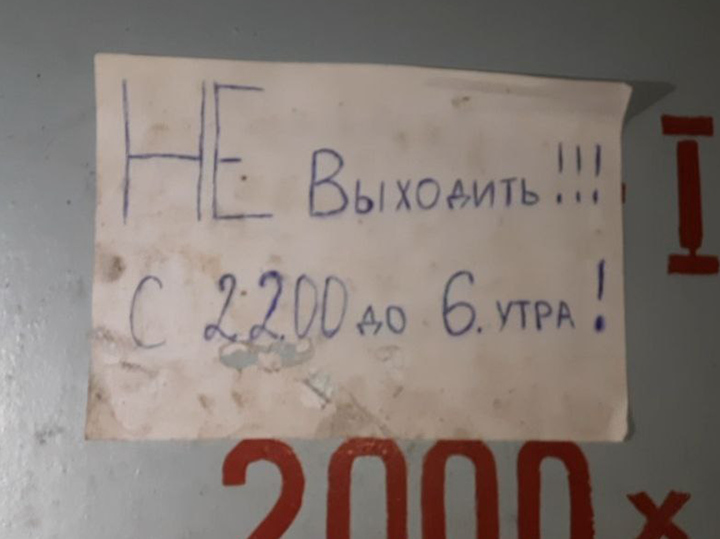 НЕ Выходить!!!
I
с 2200 до 6. утра!
2000 х